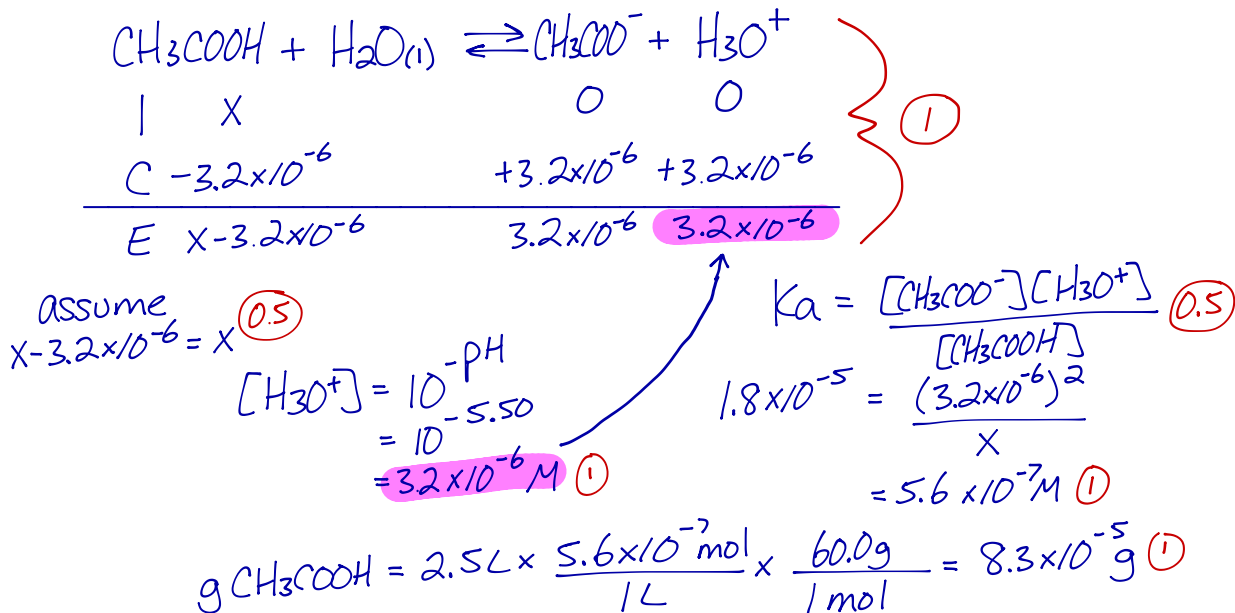 CH₃COOH + H₂O(l) ⇌ CH₃COO⁻ + H₃O⁺
I X 0 0 } 1
C -3.2×10⁻⁶ +3.2×10⁻⁶ +3.2×10⁻⁶
E X-3.2×10⁻⁶ 3.2×10⁻⁶ 3.2×10⁻⁶
assume
X-3.2×10⁻⁶ = X 0.5
[H₃O⁺] = 10^-pH
= 10^-5.50
= 3.2×10⁻⁶ M 1
Ka = [CH₃COO⁻][H₃O⁺] / [CH₃COOH] 0.5
1.8×10⁻⁵ = (3.2×10⁻⁶)² / X
= 5.6×10⁻⁷ M 1
g CH₃COOH = 2.5L × 5.6×10⁻⁷ mol / 1L × 60.0g / 1 mol = 8.3×10⁻⁵ g 1